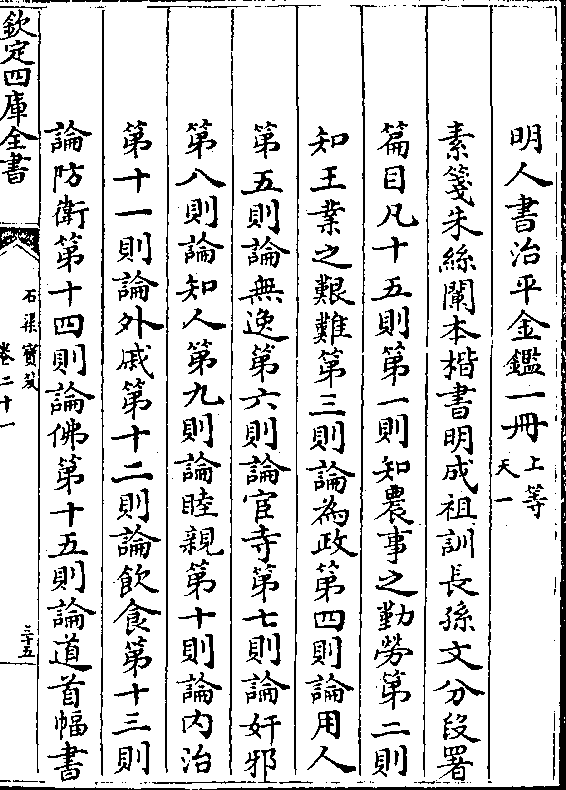 明人書治平金鑑一冊上等
天一
素箋朱絲闌本楷書明成祖訓長孫文分段署
篇目凡十五則第一則知農事之勤勞第二則
知王業之艱難第三則論為政第四則論用人
第五則論無逸第六則論宦寺第七則論奸邪
第八則論知人第九則論睦親第十則論内治
第十一則論外戚第十二則論飲食第十三則
論防衛第十四則論佛第十五則論道首幅書
欽定四庫全書
石渠寶笈
卷二十一
三十五